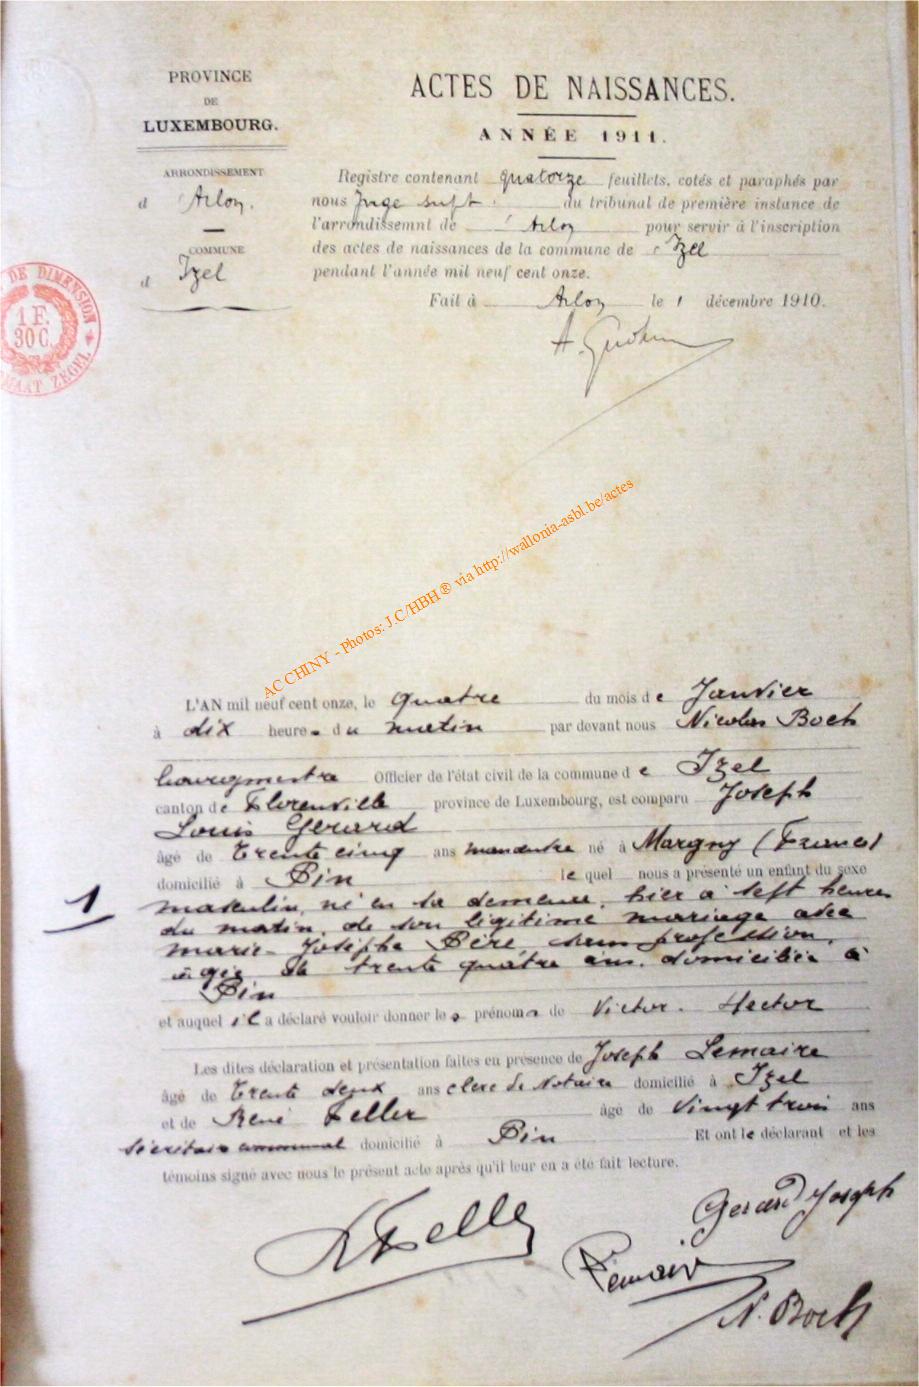 PROVINCE
DE
LUXEMBOURG.
ARRONDISSEMENT
d Arlon.
COMMUNE
d Izel
ACTES DE NAISSANCES.
ANNÉE 1911.
Registre contenant quatorze feuillets, cotés et paraphés par
nous Juge supt. du tribunal de première instance de
l'arrondissemnt de Arlon pour servir à l'inscription
des actes de naissances de la commune de Izel
pendant l'année mil neuf cent onze.
Fait à Arlon le 1 décembre 1910.
DE DIMENSION
1 F.
30 C.
MAAT ZEGEL
AC CHINY - Photos: J.C/HBH ® via http://wallonia-asbl.be/actes
1
L'AN mil neuf cent onze, le quatre du mois de Janvier
à dix heures du matin par devant nous Nicolas Boch
bourgmestre Officier de l'état civil de la commune de Izel
canton de Florenville province de Luxembourg, est comparu Joseph
Louis Gérard
âgé de trente cinq ans né à Margny (France)
domicilié à Pin lequel nous a présenté un enfant du sexe
masculin, né en sa demeure, hier à sept heures
du matin, de son légitime mariage avec
marie-Josèphe Père, sans profession,
âgée de trente quatre ans, domiciliée à
Pin
et auquel il a déclaré vouloir donner les prénoms de Victor. Hector
Les dites déclaration et présentation faites en présence de Joseph Lemaire
âgé de trente deux ans clerc de Notaire domicilié à Izel
et de René Feller âgé de vingt trois ans
secrétaire communal domicilié à Pin Et ont le déclarant et les
témoins signé avec nous le présent acte après qu'il leur en a été fait lecture.
R Feller
Gerard Joseph
Lemaire
N. Boch